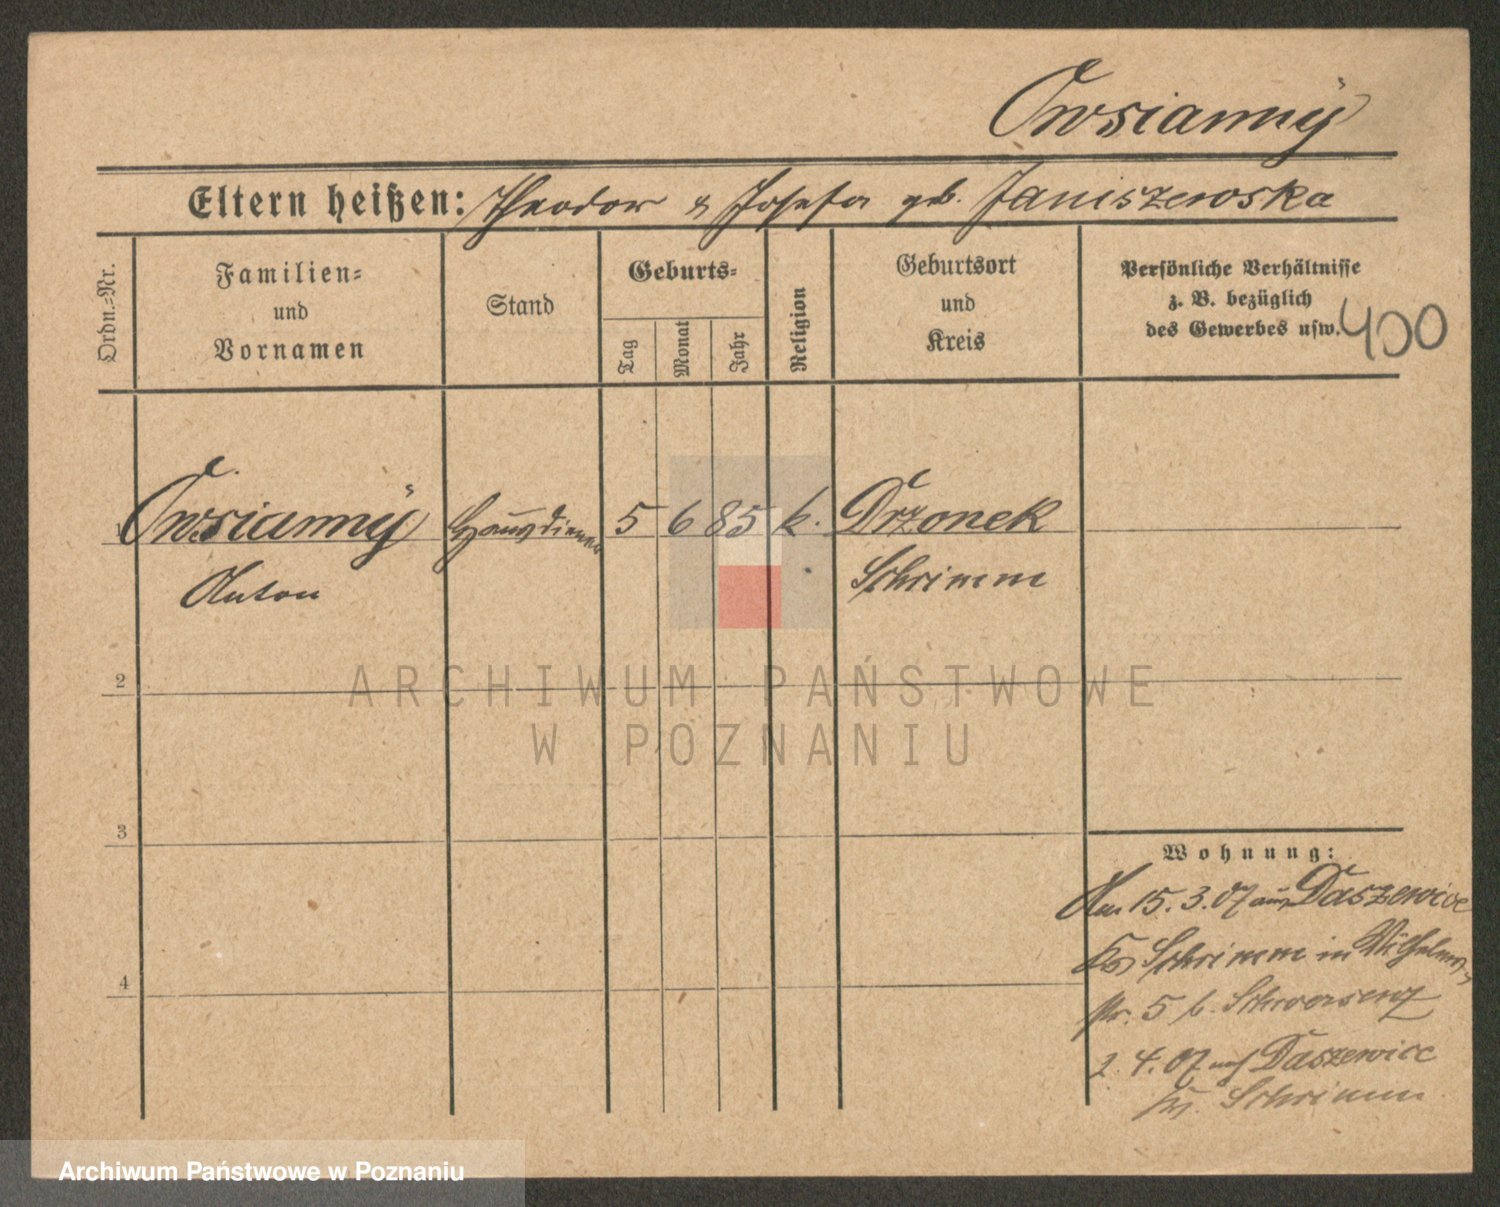 Owsianny
Eltern heißen: Theodor & Josefa geb. Janiszewska
Ordn.-Nr.
Familien-
und
Vornamen
Stand
Geburts-
Tag
Monat
Jahr
Religion
Geburtsort
und
Kreis
Persönliche Verhältnisse
z. B. bezüglich
des Gewerbes usw.
400
1 Owsianny Hausdiener 5 6 85 k. Drzonek
Anton Schrimm
2
ARCHIWUM PAŃSTWOWE
W POZNANIU
3
Wohnung:
Am 15.3.07 aus Daszewice
Krs Schrimm in Wilhelms-
str. 5 b. Schwersenz
4
2.4.07 nach Daszewice
Krs. Schrimm
Archiwum Państwowe w Poznaniu